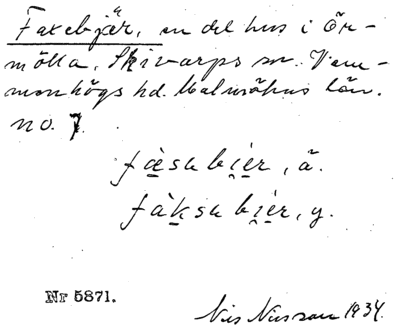 Faxebjär, en del hus i Ör-
mölla, Skivarps sn. Vem-
menhögs hd. Malmöhus län.
no. 7
fàsu bi̯er, ä.
fàksu bi̯er, y.
Nr 5871.
Nils Nilsson 1934.